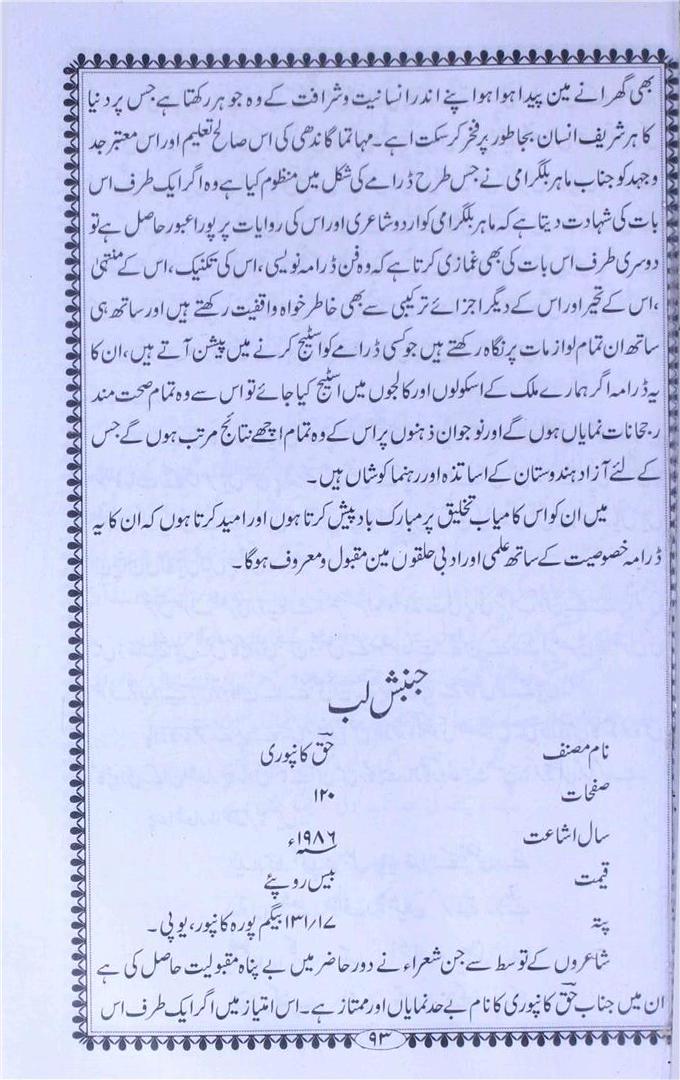 بھی گھرانے مین پیدا ہوا ہو اپنے اندر انسانیت و شرافت کے وہ جوہر رکھتا ہے جس پر دنیا
کا ہر شریف انسان بجا طور پر فخر کر سکتا ہے۔ مہاتما گاندھی کی اس صالح تعلیم اور اس معتبر جد
و جہد کو جناب ماہر بلگرامی نے جس طرح ڈرامے کی شکل میں منظوم کیا ہے وہ اگر ایک طرف اس
بات کی شہادت دیتا ہے کہ ماہر بلگرامی کو اردو شاعری اور اس کی روایات پر پورا عبور حاصل ہے تو
دوسری طرف اس بات کی بھی غمازی کرتا ہے کہ وہ فن ڈرامہ نویسی، اس کی تکنیک، اس کے منتہیٰ
، اس کے تحیر اور اس کے دیگر اجزائے ترکیبی سے بھی خاطر خواہ واقفیت رکھتے ہیں اور ساتھ ہی
ساتھ ان تمام لوازمات پر نگاہ رکھتے ہیں جو کسی ڈرامے کو اسٹیج کرنے میں پیشن آتے ہیں، ان کا
یہ ڈرامہ اگر ہمارے ملک کے اسکولوں اور کالجوں میں اسٹیج کیا جائے تو اس سے وہ تمام صحت مند
رجحانات نمایاں ہوں گے اور نوجوان ذہنوں پر اس کے وہ تمام اچھے نتائج مرتب ہوں گے جس
کے لئے آزاد ہندوستان کے اساتذہ اور رہنما کوشاں ہیں۔
میں ان کو اس کامیاب تخلیق پر مبارک باد پیش کرتا ہوں اور امید کرتا ہوں کہ ان کا یہ
ڈرامہ خصوصیت کے ساتھ علمی اور ادبی حلقوں مین مقبول و معروف ہوگا۔
جنبش لب
نام مصنف حق کانپوری
صفحات ۱۲۰
سال اشاعت ۱۹۸۶ء
قیمت بیس روپئے
پتہ ۱۳۱/۱۷ بیگم پورہ کانپور، یوپی۔
شاعروں کے توسط سے جن شعراء نے دور حاضر میں بے پناہ مقبولیت حاصل کی ہے
ان میں جناب حق کانپوری کا نام بے حد نمایاں اور ممتاز ہے۔ اس امتیاز میں اگر ایک طرف اس
۹۳